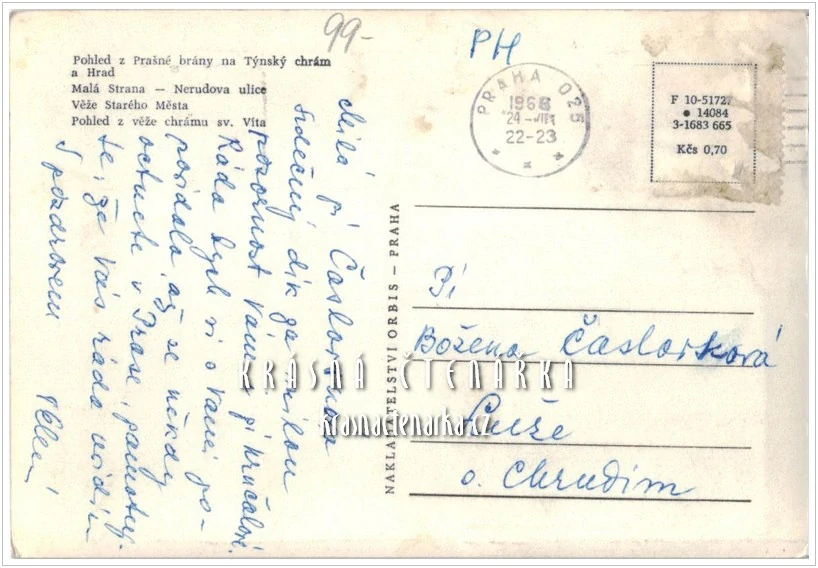 99-
PH
Pohled z Prašné brány na Týnský chrám
a Hrad
Malá Strana — Nerudova ulice
Věže Starého Města
Pohled z věže chrámu sv. Víta
PRAHA 025
1968
24-VIII
22-23
F 10-51727
● 14084
3-1683 665
Kčs 0,70
Milá pí Časlavková
srdečný dík za
pozornost Vám i pí
Ráda bych si s Vámi po-
povídala, až se někdy
octnete v Praze, pamatuj-
te, že Vás ráda uvidím
S pozdravem
NAKLADATELSTVÍ ORBIS — PRAHA
Pí
Božena Časlavková
Luže
o. Chrudim
KRÁSNÁ ČTENÁŘKA
krasnactenarka.cz